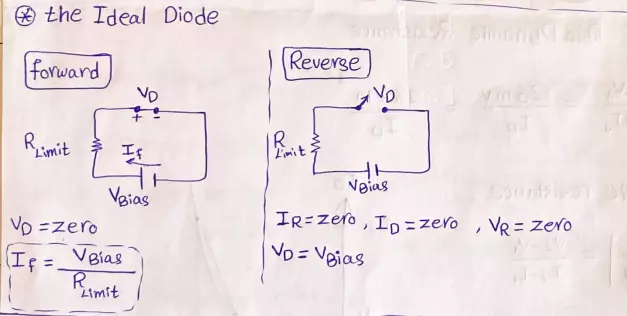 ⊛ the Ideal Diode
forward
VD
+ -
RLimit
If
VBias
VD = zero
If = VBias / RLimit
Reverse
VD
RLimit
VBias
IR = zero, ID = zero, VR = zero
VD = VBias